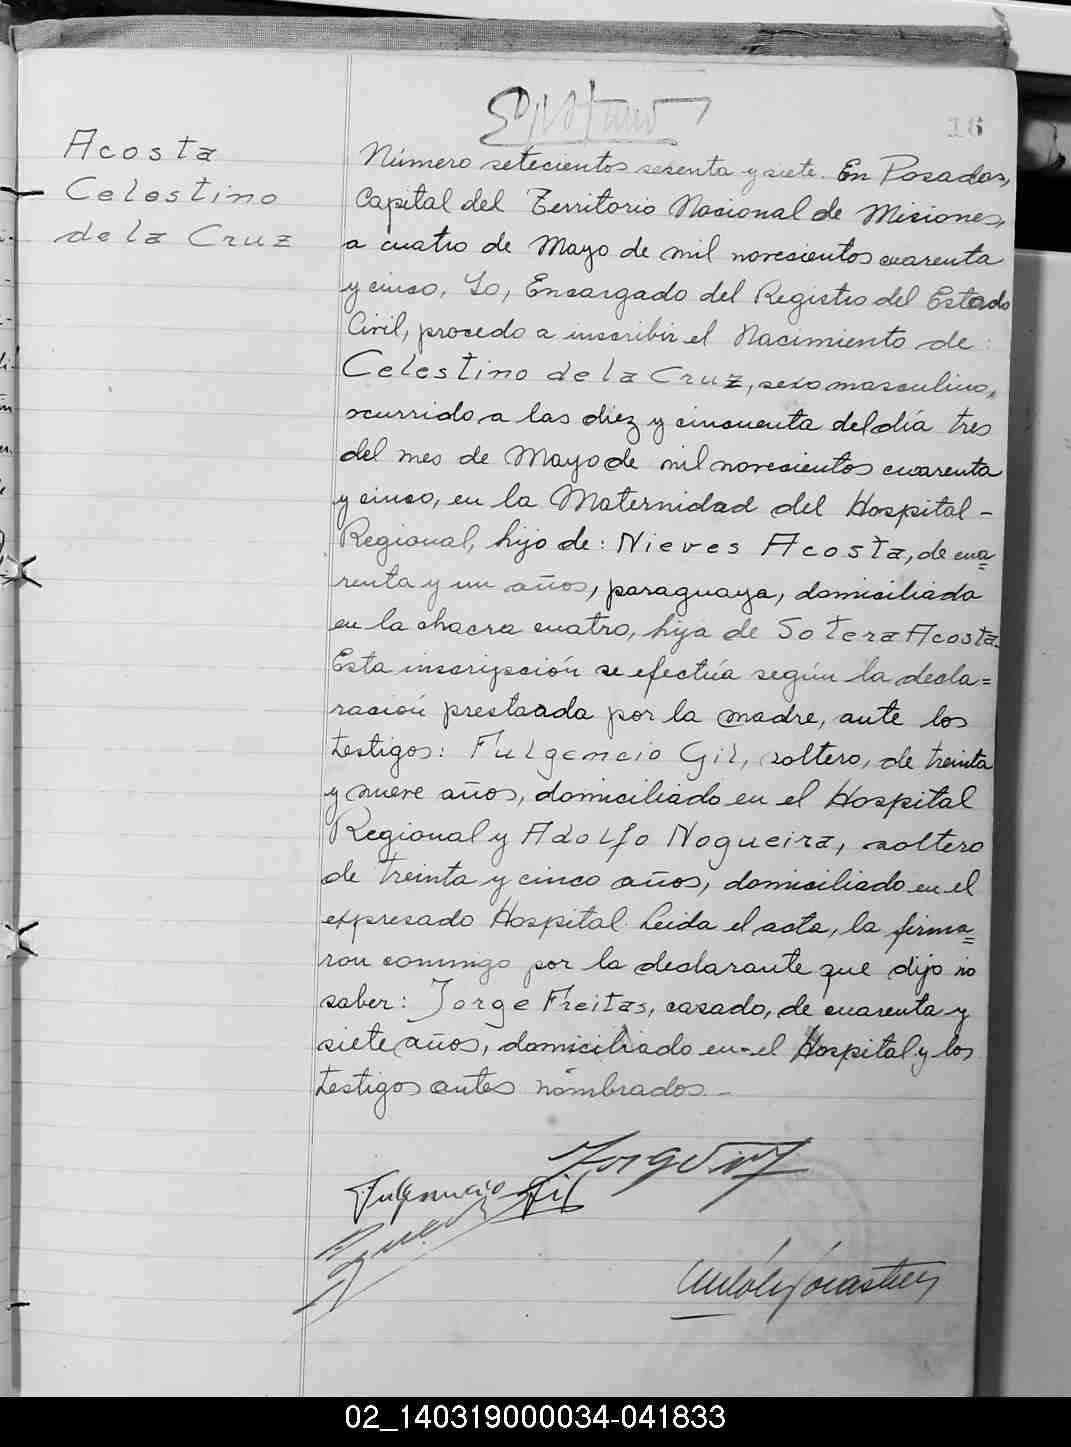 16
Acosta
Celestino
de la Cruz
Número setecientos sesenta y siete. En Posadas,
Capital del Territorio Nacional de Misiones,
a cuatro de Mayo de mil novecientos cuarenta
y cinco, Yo, Encargado del Registro del Estado
Civil, procedo a inscribir el Nacimiento de:
Celestino de la Cruz, sexo masculino,
ocurrido a las diez y cincuenta del día tres
del mes de Mayo de mil novecientos cuarenta
y cinco, en la Maternidad del Hospital-
Regional, hijo de: Nieves Acosta, de cua=
renta y un años, paraguaya, domiciliada
en la chacra cuatro, hija de Sotera Acosta.
Esta inscripción se efectúa según la decla=
ración prestaada por la madre, ante los
testigos: Fulgencio Gil, soltero, de treinta
y nueve años, domiciliado en el Hospital
Regional y Adolfo Nogueira, soltero
de treinta y cinco años, domiciliado en el
expresado Hospital. Leida el acta, la firma=
ron conmigo por la declarante que dijo no
saber: Jorge Freitas, casado, de cuarenta y
siete años, domiciliado en el Hospital y los
testigos antes nombrados.-
Fulgencio Gil
02_140319000034-041833